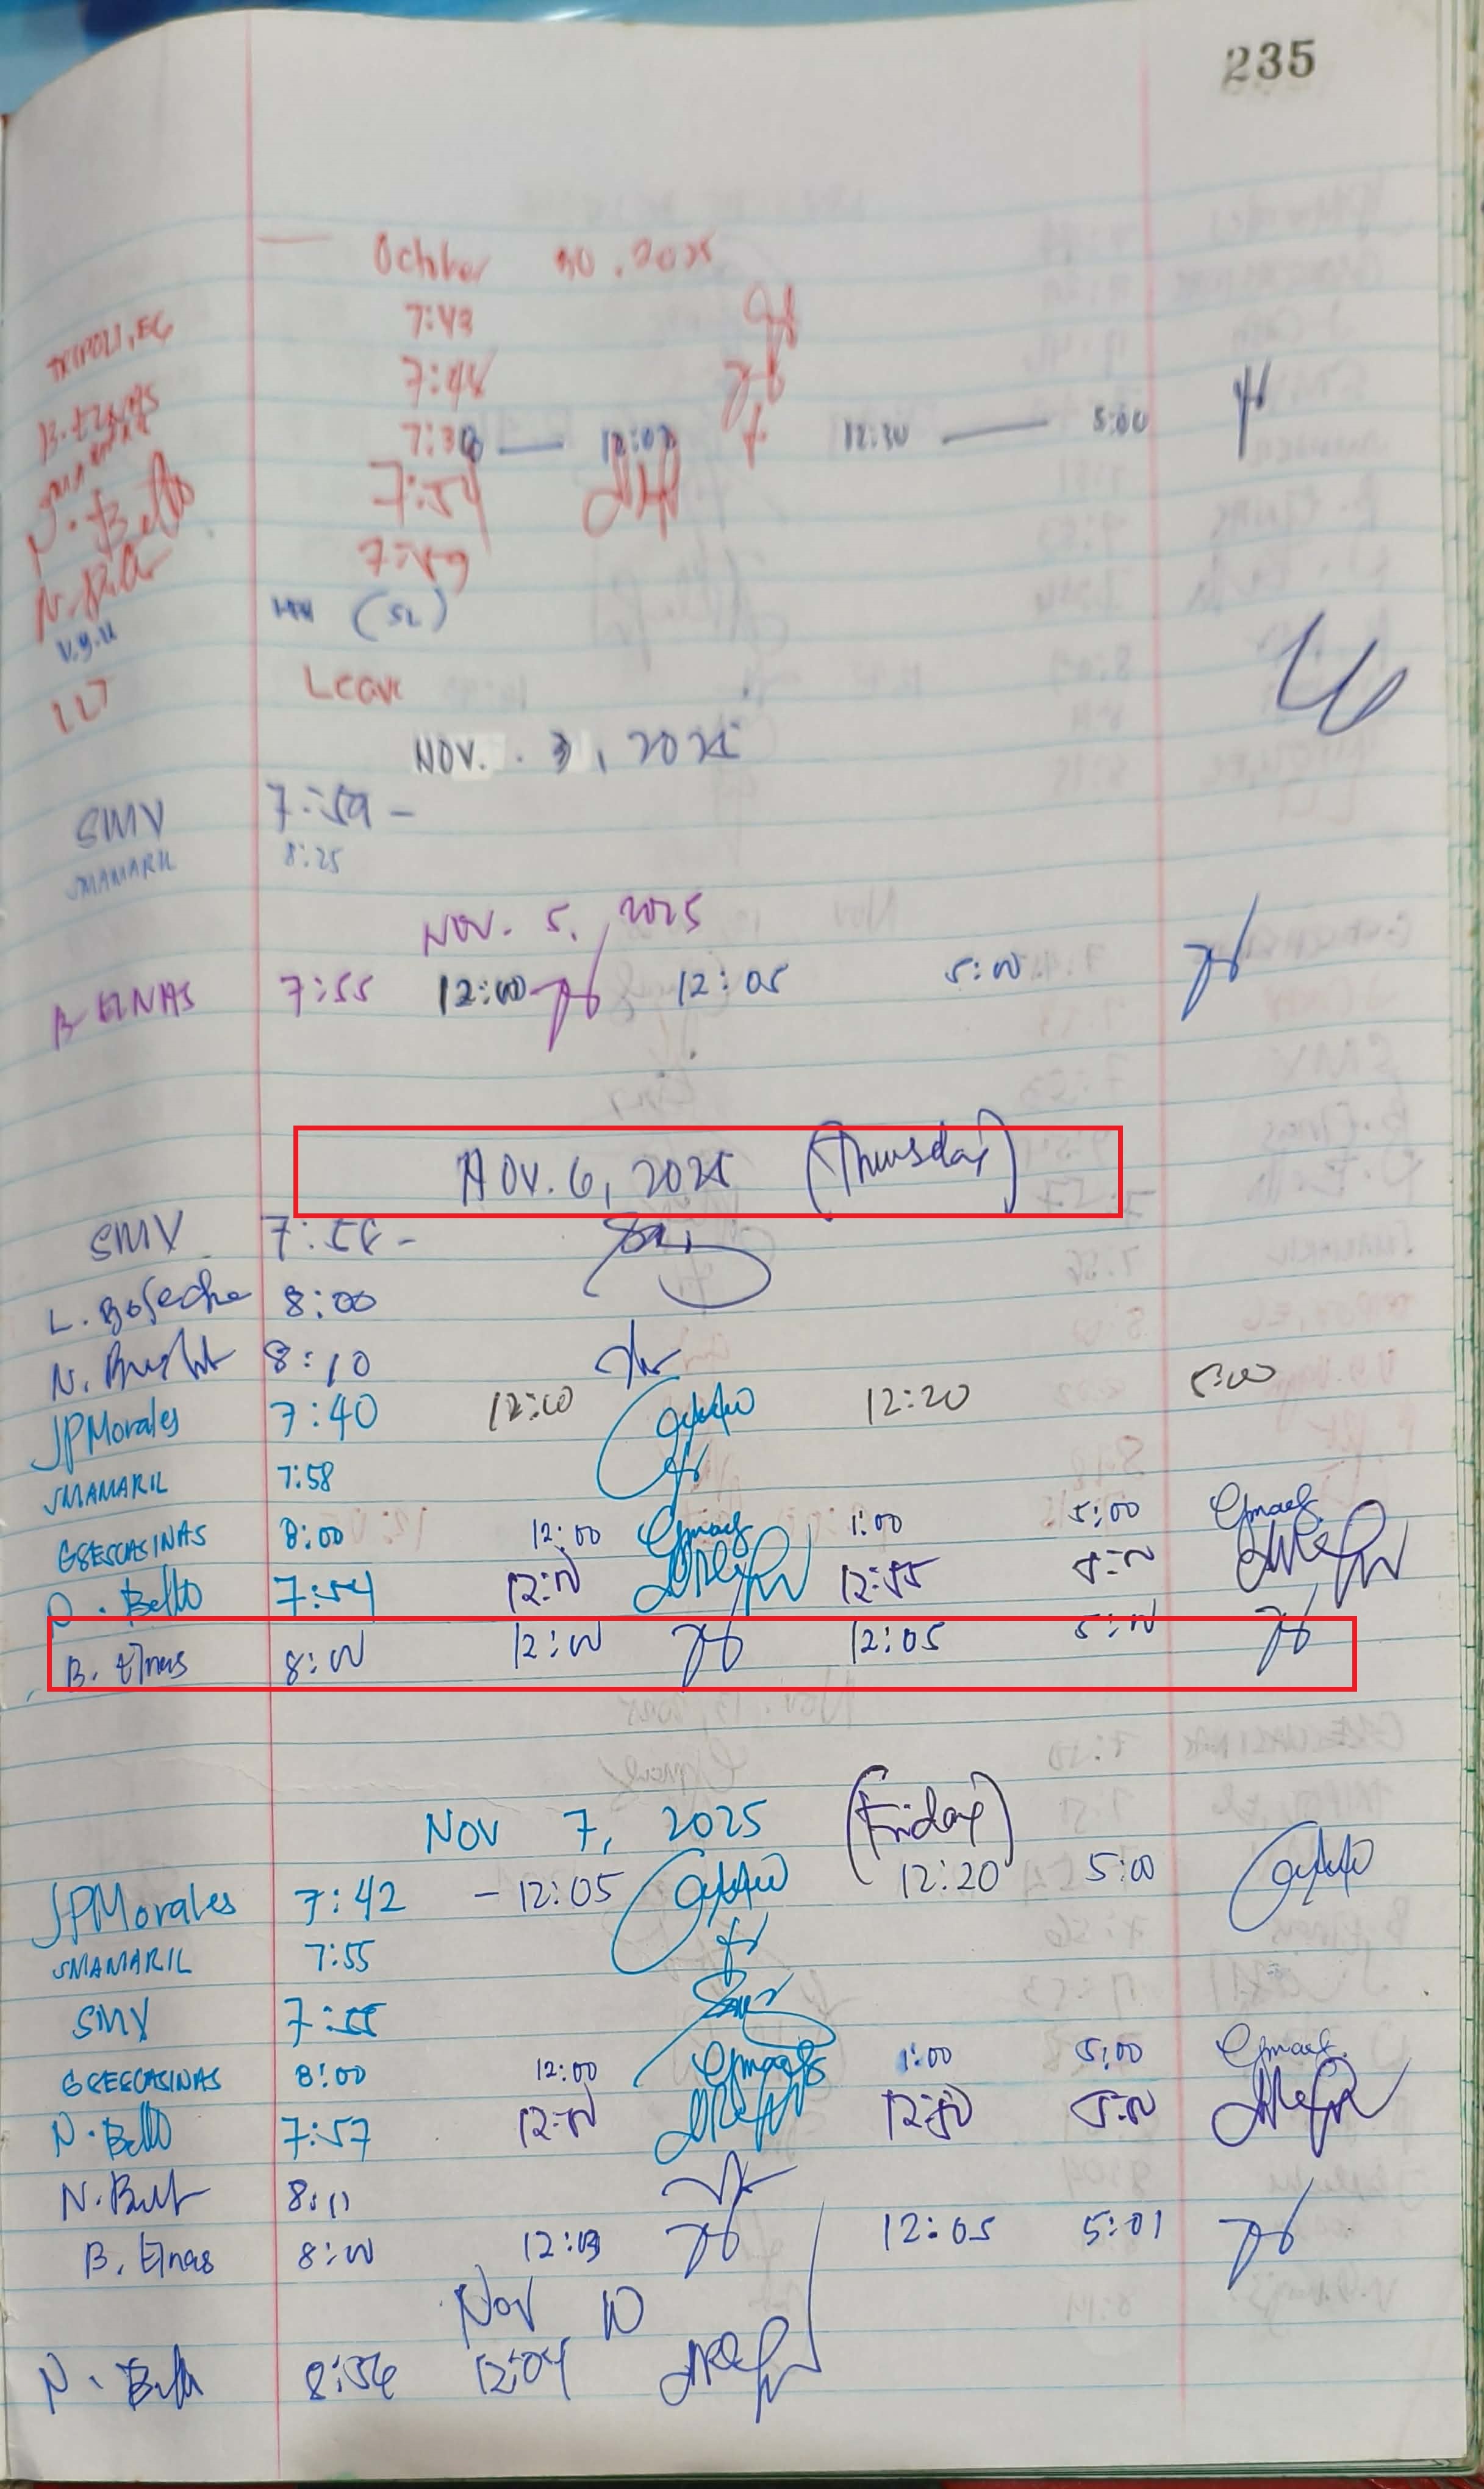 235
October 30, 2025
TRIPOLI, EG 7:43
B. Elnas 7:48
7:30 — 12:02 12:30 — 5:00
N. Bello 7:54
7:59
V.g.u (SL)
LLT Leave
NOV. 3, 2025
SMV 7:59 -
JMAMARIL 8:25
NOV. 5, 2025
B ELNAS 7:55 12:00 12:05 5:00
NOV. 6, 2025 (Thursday)
SMV 7:58 -
L. 8:00
N. 8:10
JPMorales 7:40 12:10 12:20 5:00
JMAMARIL 7:58
GSESCASINAS 8:00 12:00 1:00 5:00
N. Bello 7:54 12:00 12:55 5:00
B. Elnas 8:00 12:00 12:05 5:00
Nov 7, 2025 (Friday)
JPMorales 7:42 - 12:05 12:20 5:00
JMAMARIL 7:55
SMV 7:55
GSESCASINAS 8:00 12:00 1:00 5:00
N. Bello 7:57 12:00 12:50 5:00
N. 8:11
B. Elnas 8:00 12:03 12:05 5:01
Nov 10
N. Bello 8:56 12:04